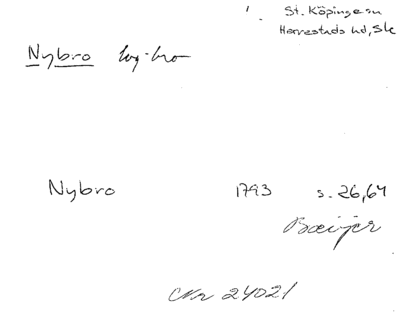 St. Köpinge sn
Herrestads hd, Sk
Nybro by-bro
Nybro 1793 s. 26,64
Boeijer
Nr 24021